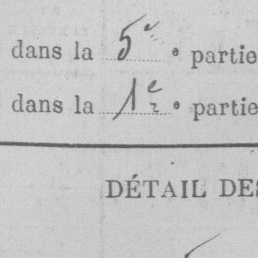 dans la 5e e partie
dans la 1e e partie
DÉTAIL DES